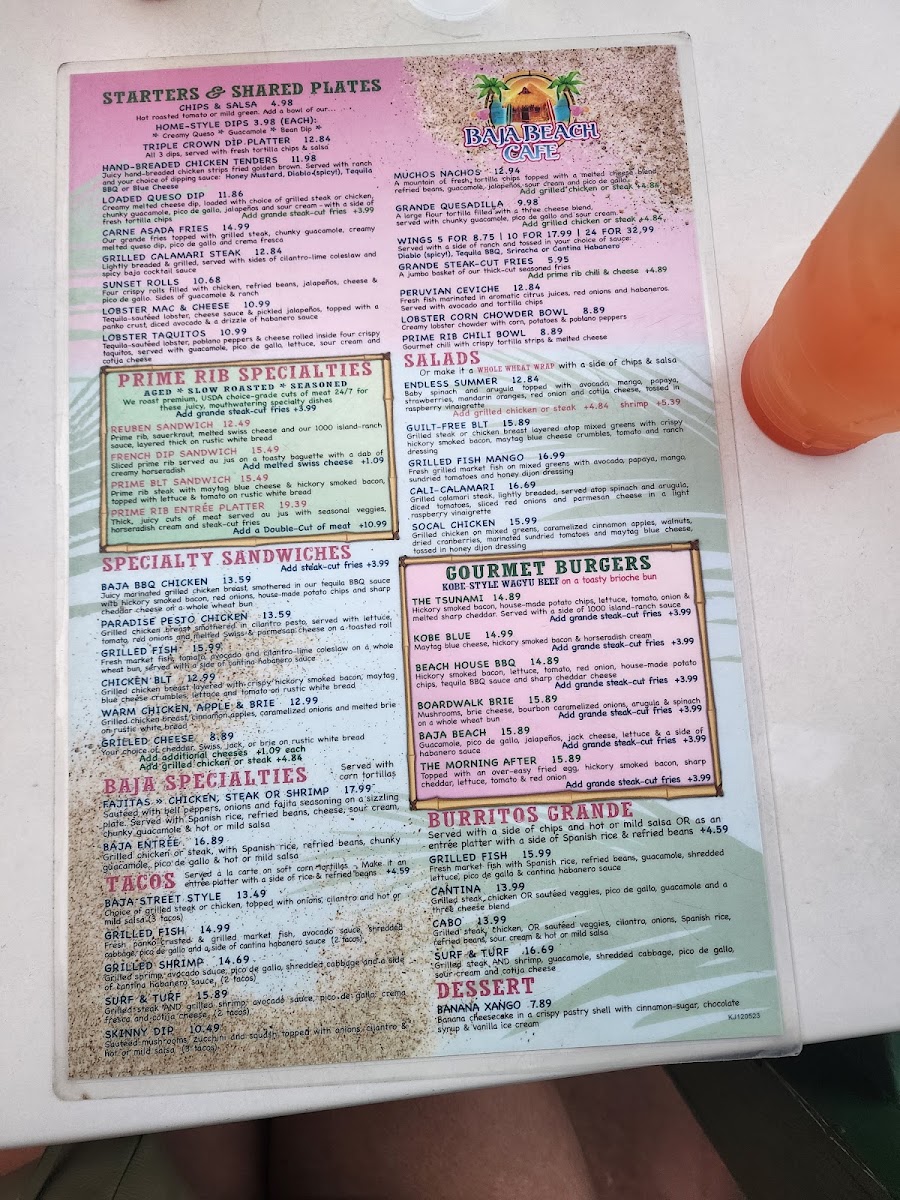 STARTERS & SHARED PLATES
CHIPS & SALSA 4.98
Hot roasted tomato or mild green. Add a bowl of our...
HOME-STYLE DIPS 3.98 (EACH):
* Creamy Queso * Guacamole * Bean Dip *
TRIPLE CROWN DIP PLATTER 12.84
All 3 dips, served with fresh tortilla chips & salsa
HAND-BREADED CHICKEN TENDERS 11.98
Juicy hand-breaded chicken strips fried golden brown. Served with ranch
and your choice of dipping sauce: Honey Mustard, Diablo (spicy!), Tequila
BBQ or Blue Cheese
LOADED QUESO DIP 11.86
Creamy melted cheese dip, loaded with choice of grilled steak or chicken,
chunky guacamole, pico de gallo, jalapeños and sour cream - with a side of
fresh tortilla chips Add grande steak-cut fries +3.99
CARNE ASADA FRIES 14.99
Our grande fries topped with grilled steak, chunky guacamole, creamy
melted queso dip, pico de gallo and crema fresca
GRILLED CALAMARI STEAK 12.84
Lightly breaded & grilled, served with sides of cilantro-lime coleslaw and
spicy baja cocktail sauce
SUNSET ROLLS 10.68
Four crispy rolls filled with chicken, refried beans, jalapeños, cheese &
pico de gallo. Sides of guacamole & ranch
LOBSTER MAC & CHEESE 10.99
Tequila-sautéed lobster, cheese sauce & pickled jalapeños, topped with a
panko crust, diced avocado & a drizzle of habanero sauce
LOBSTER TAQUITOS 10.99
Tequila-sautéed lobster, poblano peppers & cheese rolled inside four crispy
taquitos, served with guacamole, pico de gallo, lettuce, sour cream and
cotija cheese
PRIME RIB SPECIALTIES
AGED * SLOW ROASTED * SEASONED
We roast premium, USDA choice-grade cuts of meat 24/7 for
these juicy, mouthwatering specialty dishes
Add grande steak-cut fries +3.99
REUBEN SANDWICH 12.49
Prime rib, sauerkraut, melted swiss cheese and our 1000 island-ranch
sauce, layered thick on rustic white bread
FRENCH DIP SANDWICH 15.49
Sliced prime rib served au jus on a toasty baguette with a dab of
creamy horseradish Add melted swiss cheese +1.09
PRIME BLT SANDWICH 15.49
Prime rib steak with maytag blue cheese & hickory smoked bacon,
topped with lettuce & tomato on rustic white bread
PRIME RIB ENTRÉE PLATTER 19.39
Thick, juicy cuts of meat served au jus with seasonal veggies,
horseradish cream and steak-cut fries
Add a Double-Cut of meat +10.99
SPECIALTY SANDWICHES
Add steak-cut fries +3.99
BAJA BBQ CHICKEN 13.59
Juicy marinated grilled chicken breast, smothered in our tequila BBQ sauce
with hickory smoked bacon, red onions, house-made potato chips and sharp
cheddar cheese on a whole wheat bun
PARADISE PESTO CHICKEN 13.59
Grilled chicken breast smothered in cilantro pesto, served with lettuce,
tomato, red onions and melted Swiss & parmesan cheese on a toasted roll
GRILLED FISH 15.99
Fresh market fish, tomato, avocado and cilantro-lime coleslaw on a whole
wheat bun, served with a side of cantina habanero sauce
CHICKEN BLT 12.99
Grilled chicken breast layered with crispy hickory smoked bacon, maytag
blue cheese crumbles, lettuce and tomato on rustic white bread
WARM CHICKEN, APPLE & BRIE 12.99
Grilled chicken breast, cinnamon apples, caramelized onions and melted brie
on rustic white bread
GRILLED CHEESE 8.89
Your choice of cheddar, Swiss, jack, or brie on rustic white bread
Add additional cheeses +1.09 each
Add grilled chicken or steak +4.84
BAJA SPECIALTIES Served with
corn tortillas
FAJITAS » CHICKEN, STEAK OR SHRIMP 17.99
Sautéed with bell peppers, onions and fajita seasoning on a sizzling
plate. Served with Spanish rice, refried beans, cheese, sour cream,
chunky guacamole & hot or mild salsa
BAJA ENTRÉE 16.89
Grilled chicken or steak, with Spanish rice, refried beans, chunky
guacamole, pico de gallo & hot or mild salsa
TACOS Served à la carte on soft corn tortillas - Make it an
entrée platter with a side of rice & refried beans +4.59
BAJA STREET STYLE 13.49
Choice of grilled steak or chicken, topped with onions, cilantro and hot or
mild salsa (3 tacos)
GRILLED FISH 14.99
Fresh panko crusted & grilled market fish, avocado sauce, shredded
cabbage, pico de gallo and a side of cantina habanero sauce (2 tacos)
GRILLED SHRIMP 14.69
Grilled shrimp, avocado sauce, pico de gallo, shredded cabbage and a side
of cantina habanero sauce, (2 tacos)
SURF & TURF 15.89
Grilled steak AND grilled shrimp, avocado sauce, pico de gallo, crema
fresca and cotija cheese, (2 tacos)
SKINNY DIP 10.49
Sautéed mushrooms, zucchini and squash, topped with onions, cilantro &
hot or mild salsa (3 tacos)
BAJA BEACH
CAFE
MUCHOS NACHOS 12.94
A mountain of fresh tortilla chips topped with a melted cheese blend,
refried beans, guacamole, jalapeños, sour cream and pico de gallo
Add grilled chicken or steak +4.84
GRANDE QUESADILLA 9.98
A large flour tortilla filled with a three cheese blend,
served with chunky guacamole, pico de gallo and sour cream
Add grilled chicken or steak +4.84
WINGS 5 FOR 8.75 | 10 FOR 17.99 | 24 FOR 32.99
Served with a side of ranch and tossed in your choice of sauce:
Diablo (spicy!), Tequila BBQ, Sriracha or Cantina Habanero
GRANDE STEAK-CUT FRIES 5.95
A jumbo basket of our thick-cut seasoned fries
Add prime rib chili & cheese +4.89
PERUVIAN CEVICHE 12.84
Fresh fish marinated in aromatic citrus juices, red onions and habaneros.
Served with avocado and tortilla chips
LOBSTER CORN CHOWDER BOWL 8.89
Creamy lobster chowder with corn, potatoes & poblano peppers
PRIME RIB CHILI BOWL 8.89
Gourmet chili with crispy tortilla strips & melted cheese
SALADS
Or make it a WHOLE WHEAT WRAP with a side of chips & salsa
ENDLESS SUMMER 12.84
Baby spinach and arugula topped with avocado, mango, papaya,
strawberries, mandarin oranges, red onion and cotija cheese, tossed in
raspberry vinaigrette
Add grilled chicken or steak +4.84 shrimp +5.39
GUILT-FREE BLT 15.89
Grilled steak or chicken breast layered atop mixed greens with crispy
hickory smoked bacon, maytag blue cheese crumbles, tomato and ranch
dressing
GRILLED FISH MANGO 16.99
Fresh grilled market fish on mixed greens with avocado, papaya, mango,
sundried tomatoes and honey dijon dressing
CALI-CALAMARI 16.69
Grilled calamari steak, lightly breaded, served atop spinach and arugula,
diced tomatoes, sliced red onions and parmesan cheese in a light
raspberry vinaigrette
SOCAL CHICKEN 15.99
Grilled chicken on mixed greens, caramelized cinnamon apples, walnuts,
dried cranberries, marinated sundried tomatoes and maytag blue cheese,
tossed in honey dijon dressing
GOURMET BURGERS
KOBE-STYLE WAGYU BEEF on a toasty brioche bun
THE TSUNAMI 14.89
Hickory smoked bacon, house-made potato chips, lettuce, tomato, onion &
melted sharp cheddar. Served with a side of 1000 island-ranch sauce
Add grande steak-cut fries +3.99
KOBE BLUE 14.99
Maytag blue cheese, hickory smoked bacon & horseradish cream
Add grande steak-cut fries +3.99
BEACH HOUSE BBQ 14.89
Hickory smoked bacon, lettuce, tomato, red onion, house-made potato
chips, tequila BBQ sauce and sharp cheddar cheese
Add grande steak-cut fries +3.99
BOARDWALK BRIE 15.89
Mushrooms, brie cheese, bourbon caramelized onions, arugula & spinach
on a whole wheat bun Add grande steak-cut fries +3.99
BAJA BEACH 15.89
Guacamole, pico de gallo, jalapeños, jack cheese, lettuce & a side of
habanero sauce Add grande steak-cut fries +3.99
THE MORNING AFTER 15.89
Topped with an over-easy fried egg, hickory smoked bacon, sharp
cheddar, lettuce, tomato & red onion
Add grande steak-cut fries +3.99
BURRITOS GRANDE
Served with a side of chips and hot or mild salsa OR as an
entrée platter with a side of Spanish rice & refried beans +4.59
GRILLED FISH 15.99
Fresh market fish with Spanish rice, refried beans, guacamole, shredded
lettuce, pico de gallo & cantina habanero sauce
CANTINA 13.99
Grilled steak, chicken OR sautéed veggies, pico de gallo, guacamole and a
three cheese blend
CABO 13.99
Grilled steak, chicken, OR sautéed veggies, cilantro, onions, Spanish rice,
refried beans, sour cream & hot or mild salsa
SURF & TURF 16.69
Grilled steak AND shrimp, guacamole, shredded cabbage, pico de gallo,
sour cream and cotija cheese
DESSERT
BANANA XANGO 7.89
Banana cheesecake in a crispy pastry shell with cinnamon-sugar, chocolate
syrup & vanilla ice cream
KJ120523